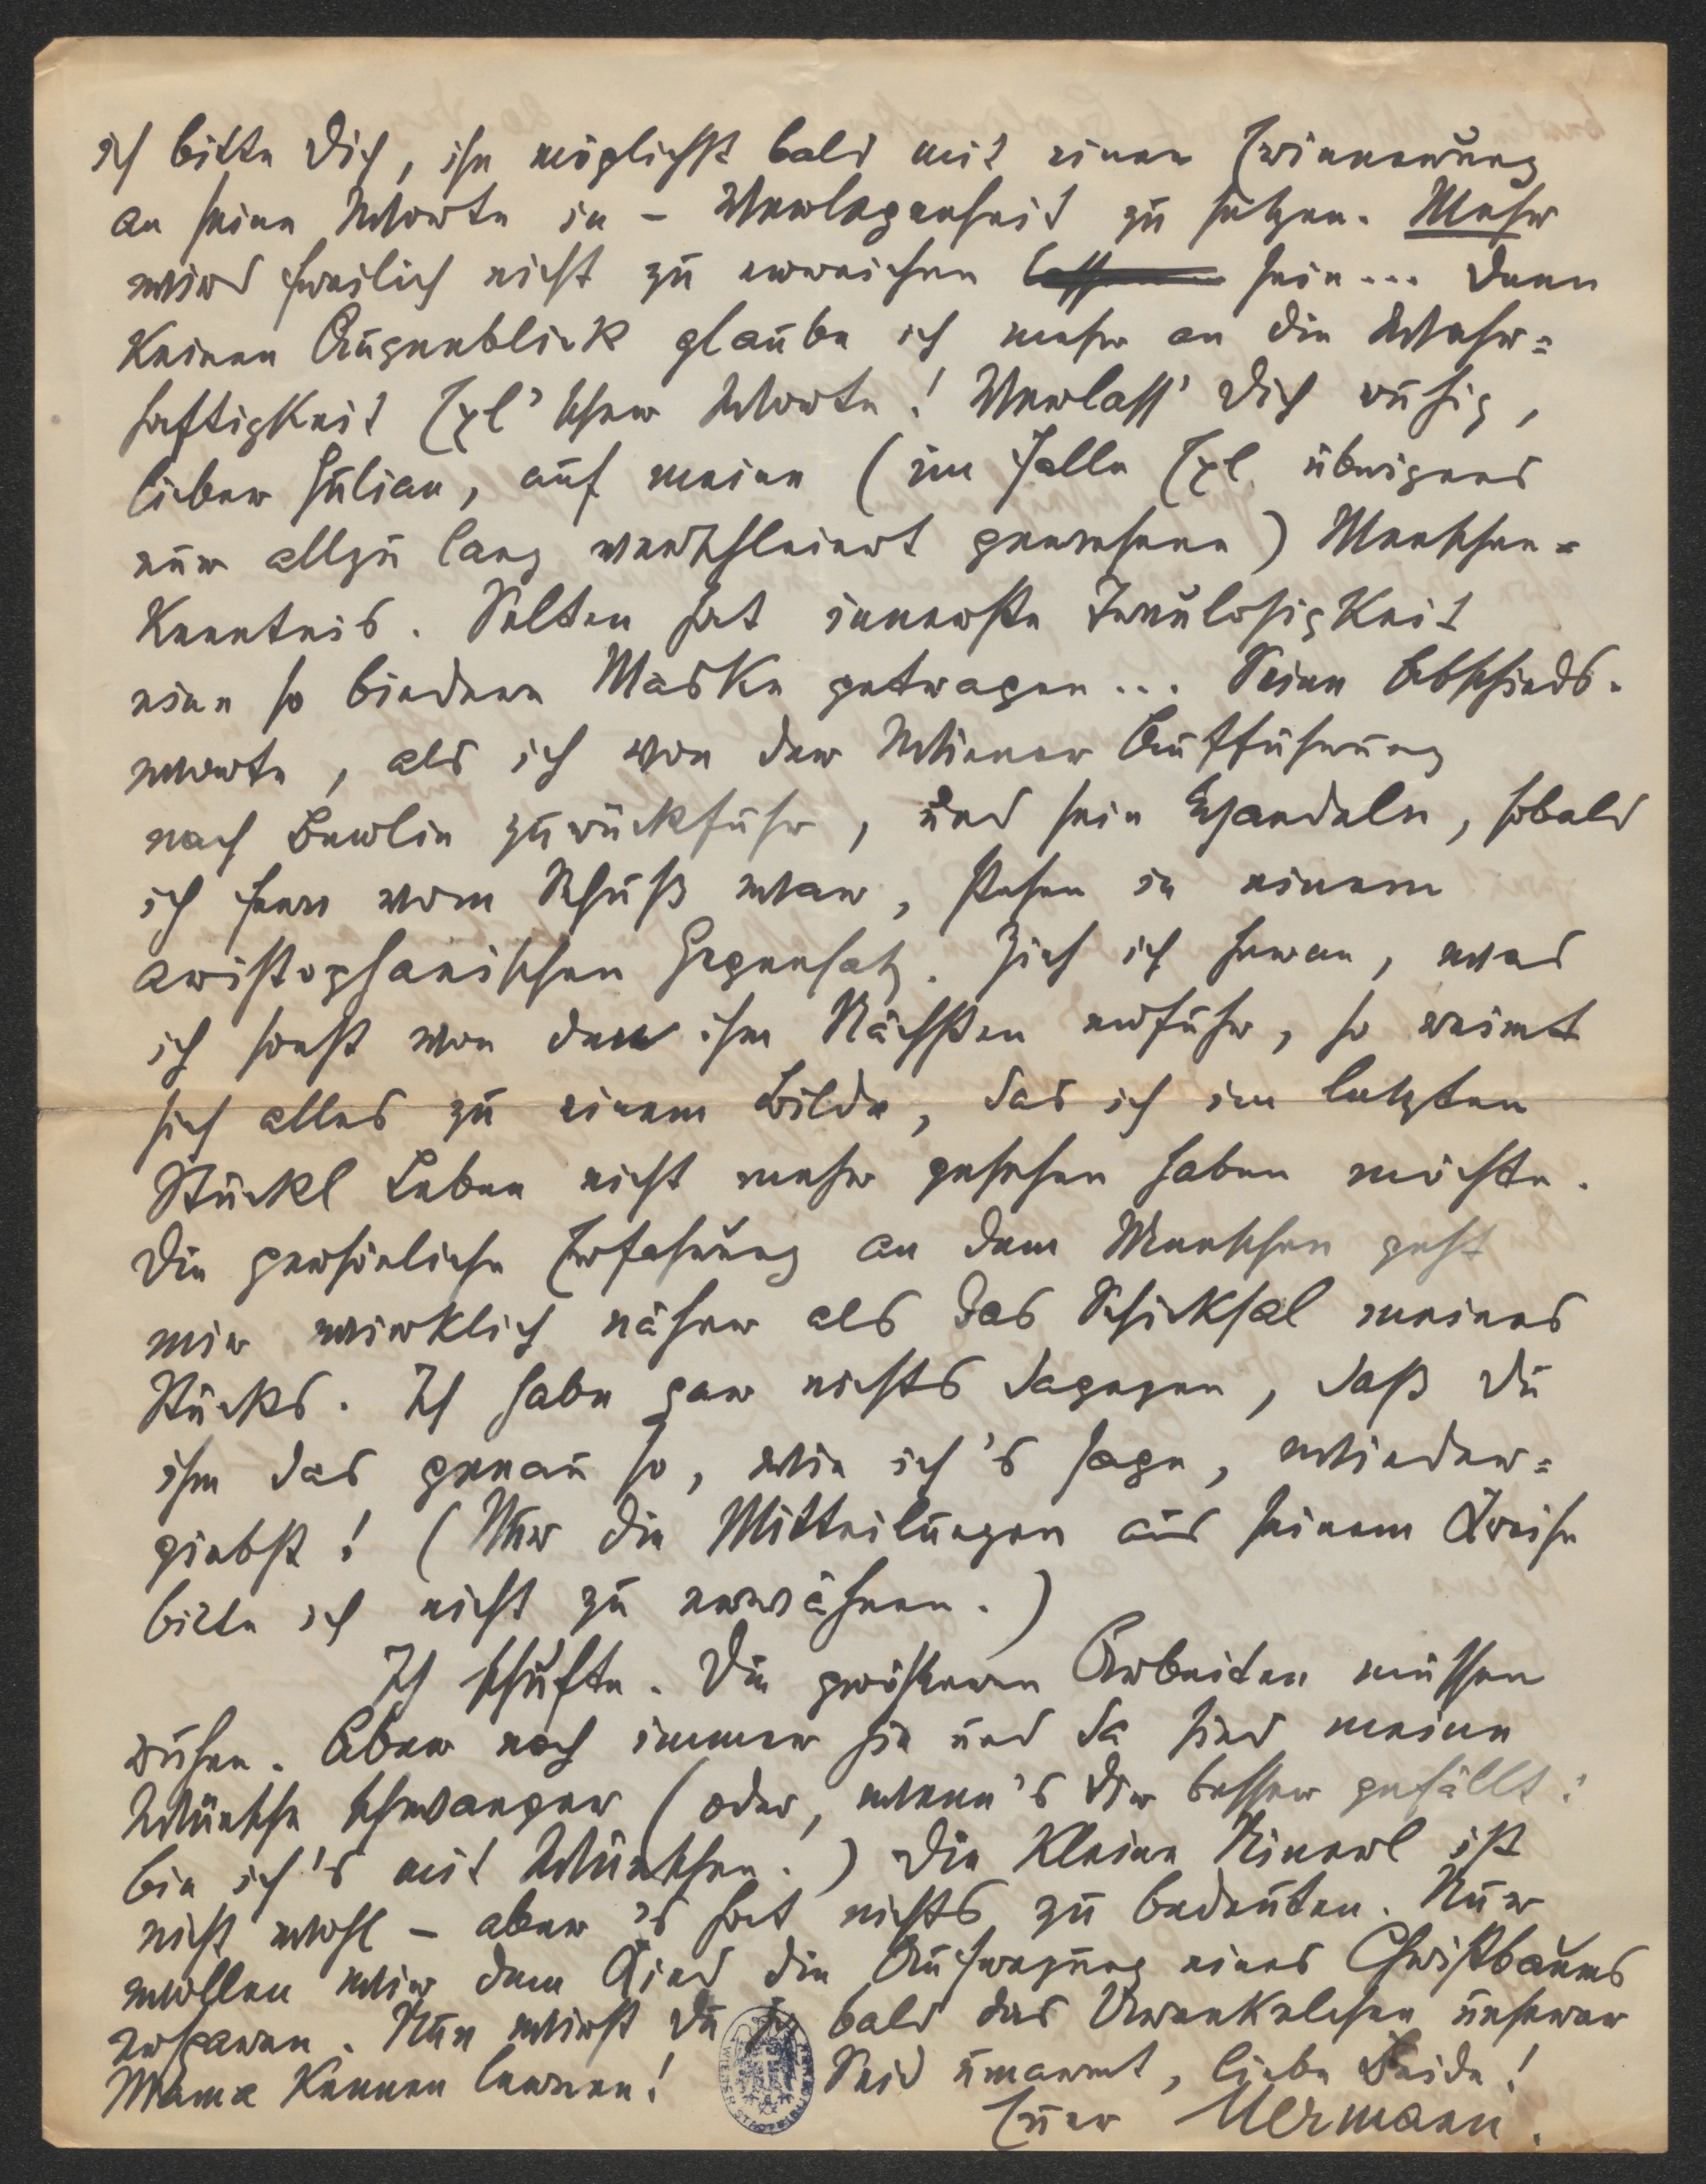 ich bitte Dich, ihn möglichst bald mit einer Erinnerung
an seine Worte in – Verlegenheit zu setzen. Mehr
wird freilich nicht zu erreichen sein... Denn
keinen Augenblick glaube ich mehr an die Wahr=
haftigkeit Exl'scher Worte! Verlass' Dich ruhig,
lieber Julian, auf meine (im Falle Exl übrigens
nur allzu lang verschleiert gewesene) Menschen=
kenntnis. Selten hat innerste Treulosigkeit
eine so biedere Maske getragen... Seine Abschieds-
worte, als ich von der Wiener Aufführung
nach Berlin zurückfuhr, und sein Handeln, sobald
ich fern vom Schuß war, stehen in einem
aristophanischen Gegensatz. Zieh ich heran, was
ich sonst von den ihm Nächsten erfuhr, so reimt
sich alles zu einem Bilde, das ich im letzten
Stückl Leben nicht mehr gesehen haben möchte.
Die persönliche Erfahrung an dem Menschen geht
mir wirklich näher als das Schicksal meines
Stücks. Ich habe gar nichts dagegen, daß Du
ihm das genau so, wie ich's sage, wieder=
giebst! (Nur die Mitteilungen aus seinem Kreise
bitte ich nicht zu erwähnen.)
Ich schufte. Die größeren Arbeiten müssen
ruhen. Aber noch immer hie und da sind meine
Wünsche schwanger (oder, wenn's Dir besser gefällt:
bin ich's mit Wünschen.) Die kleine Ninerl ist
nicht wohl – aber 's hat nichts zu bedeuten. Nur
wollen wir dem Kind die Aufregung eines Christbaums
ersparen. Nun wirst Du ja bald das Urenkelchen unserer
Mama kennen lernen! Seid umarmt, liebe Beide!
Euer Hermann.